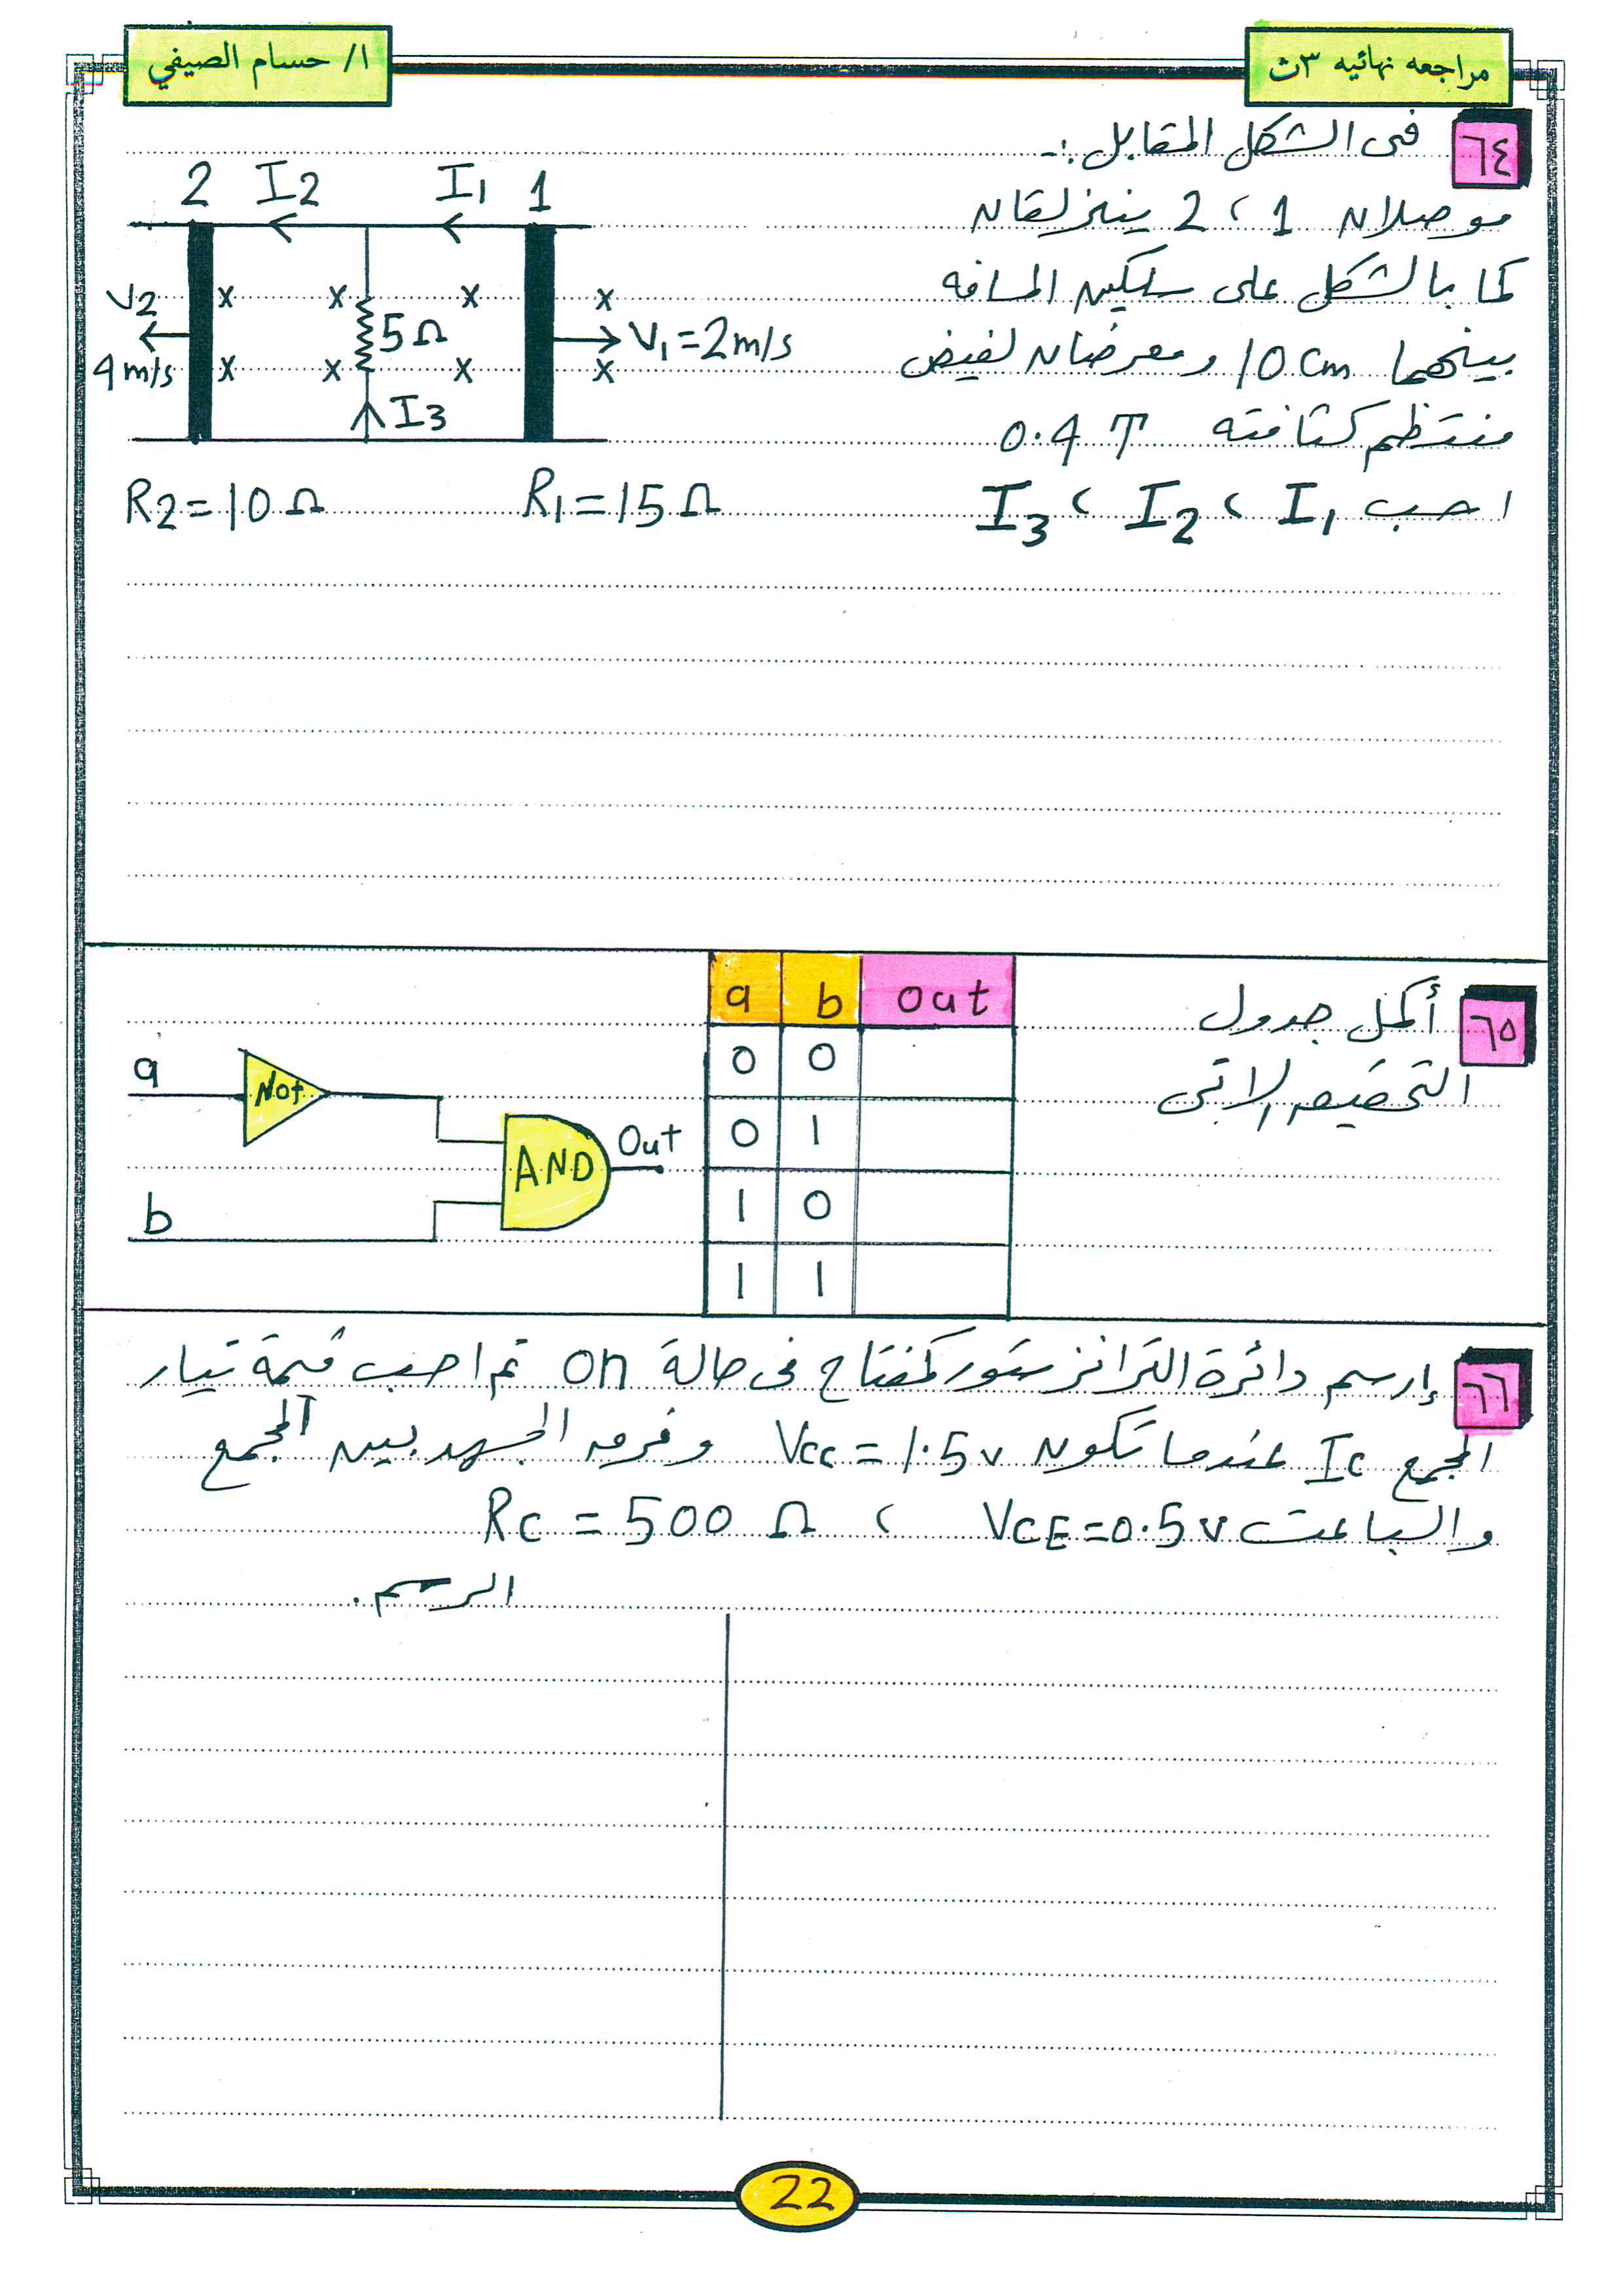 مراجعه نهائيه ٣ث
ا/ حسام الصيفي
٦٤ فى الشكل المقابل :-
موصلان 1 ، 2 ينزلقان
كما بالشكل على سلكين المسافه
بينهما 10 cm ومعرضان لفيض
منتظم كثافته 0.4 T
احسب I1 ، I2 ، I3
2 I2 I1 1
V2 x x x x
5Ω V1 = 2m/s
4 m/s x x x x
I3
R2 = 10 Ω R1 = 15 Ω
٦٥ أكمل جدول
التحقيق الاتى
a b out
0 0
0 1
1 0
1 1
a Not
AND Out
b
٦٦ إرسم دائرة الترانزستور كمفتاح فى حالة on ثم احسب قيمة تيار
المجمع Ic عندما تكون Vcc = 1.5 v وفرق الجهد بين المجمع
والباعث VCE = 0.5 v ، RC = 500 Ω
الرسم .
22